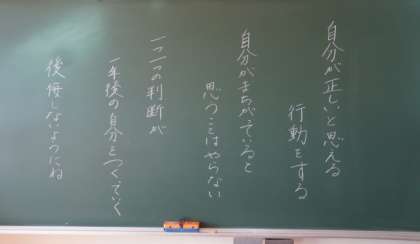 自分が正しいと思える
行動をする
自分がまちがっていると
思うことはやらない
一つ一つの判断が
一年後の自分をつくっていく
後悔しないようにね